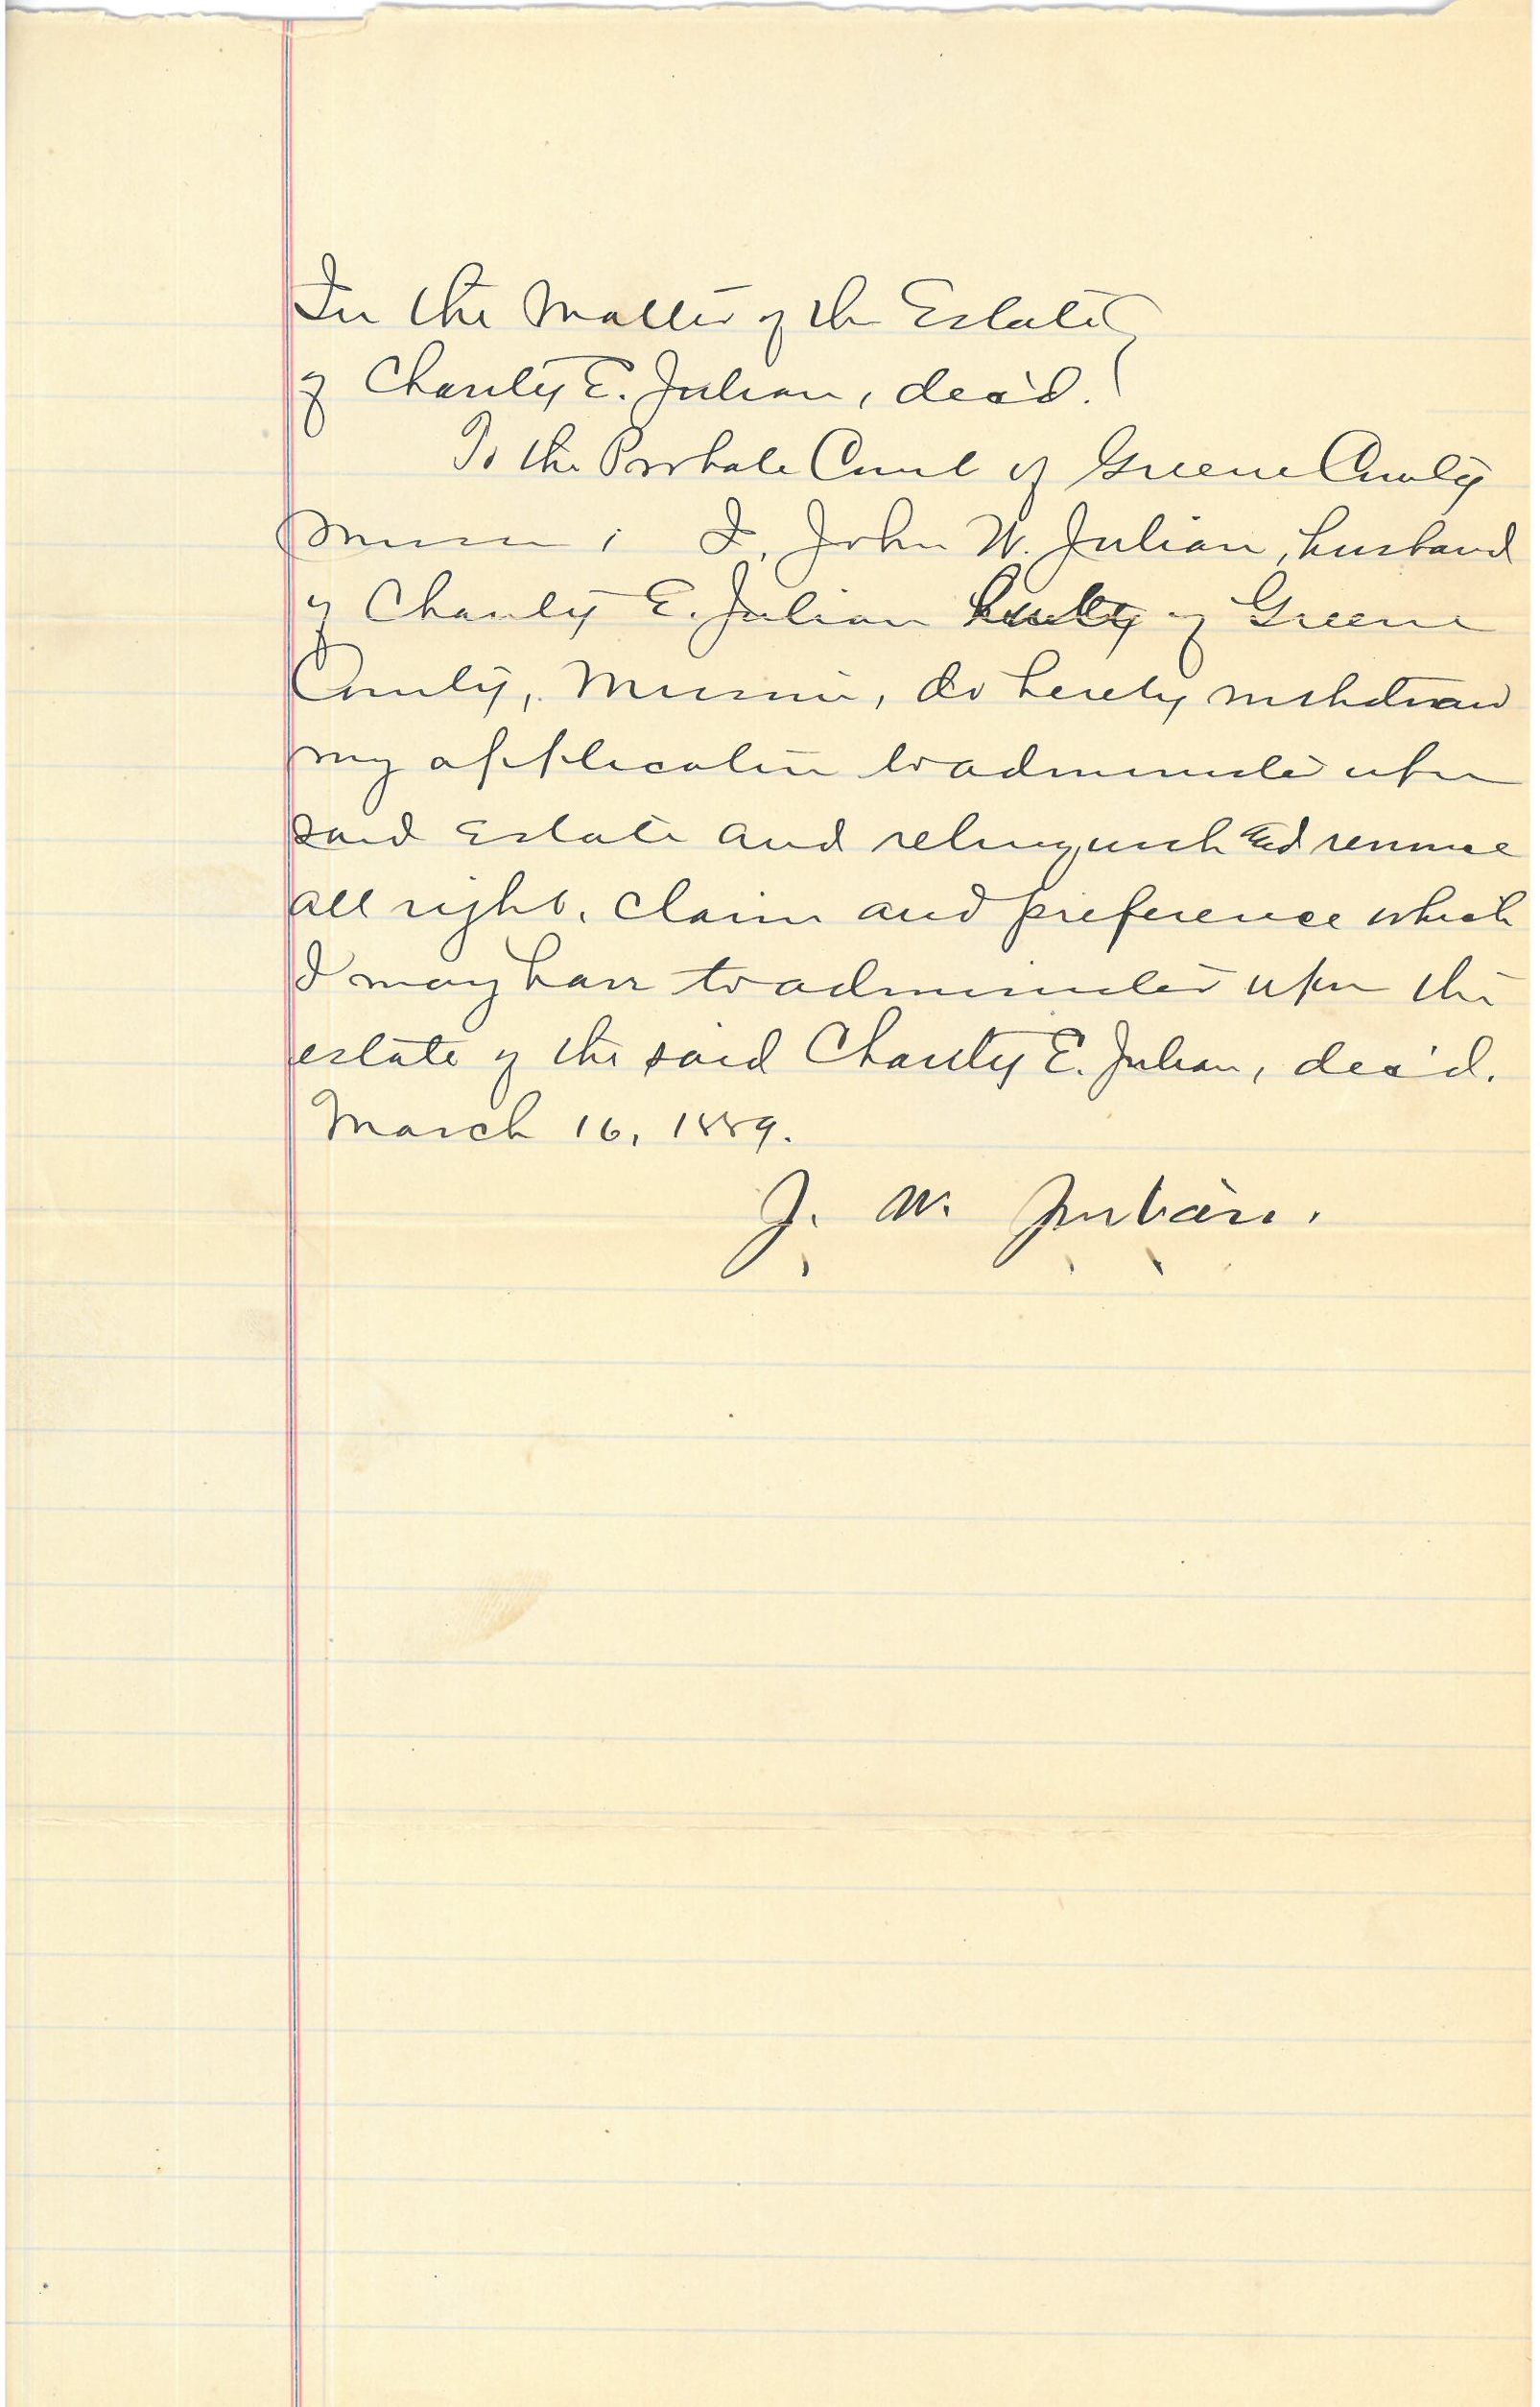 In the Matter of the Estate
of Charity E. Julian, dec'd.
To the Probate Court of Greene County
Missouri; I, John W. Julian, husband
of Charity E. Julian of Greene
County, Missouri, do hereby withdraw
my application to administer upon
said Estate and relinquish and renounce
all right, claim and preference which
I may have to administer upon the
estate of the said Charity E. Julian, dec'd.
March 16, 1889.
J. W. Julian.